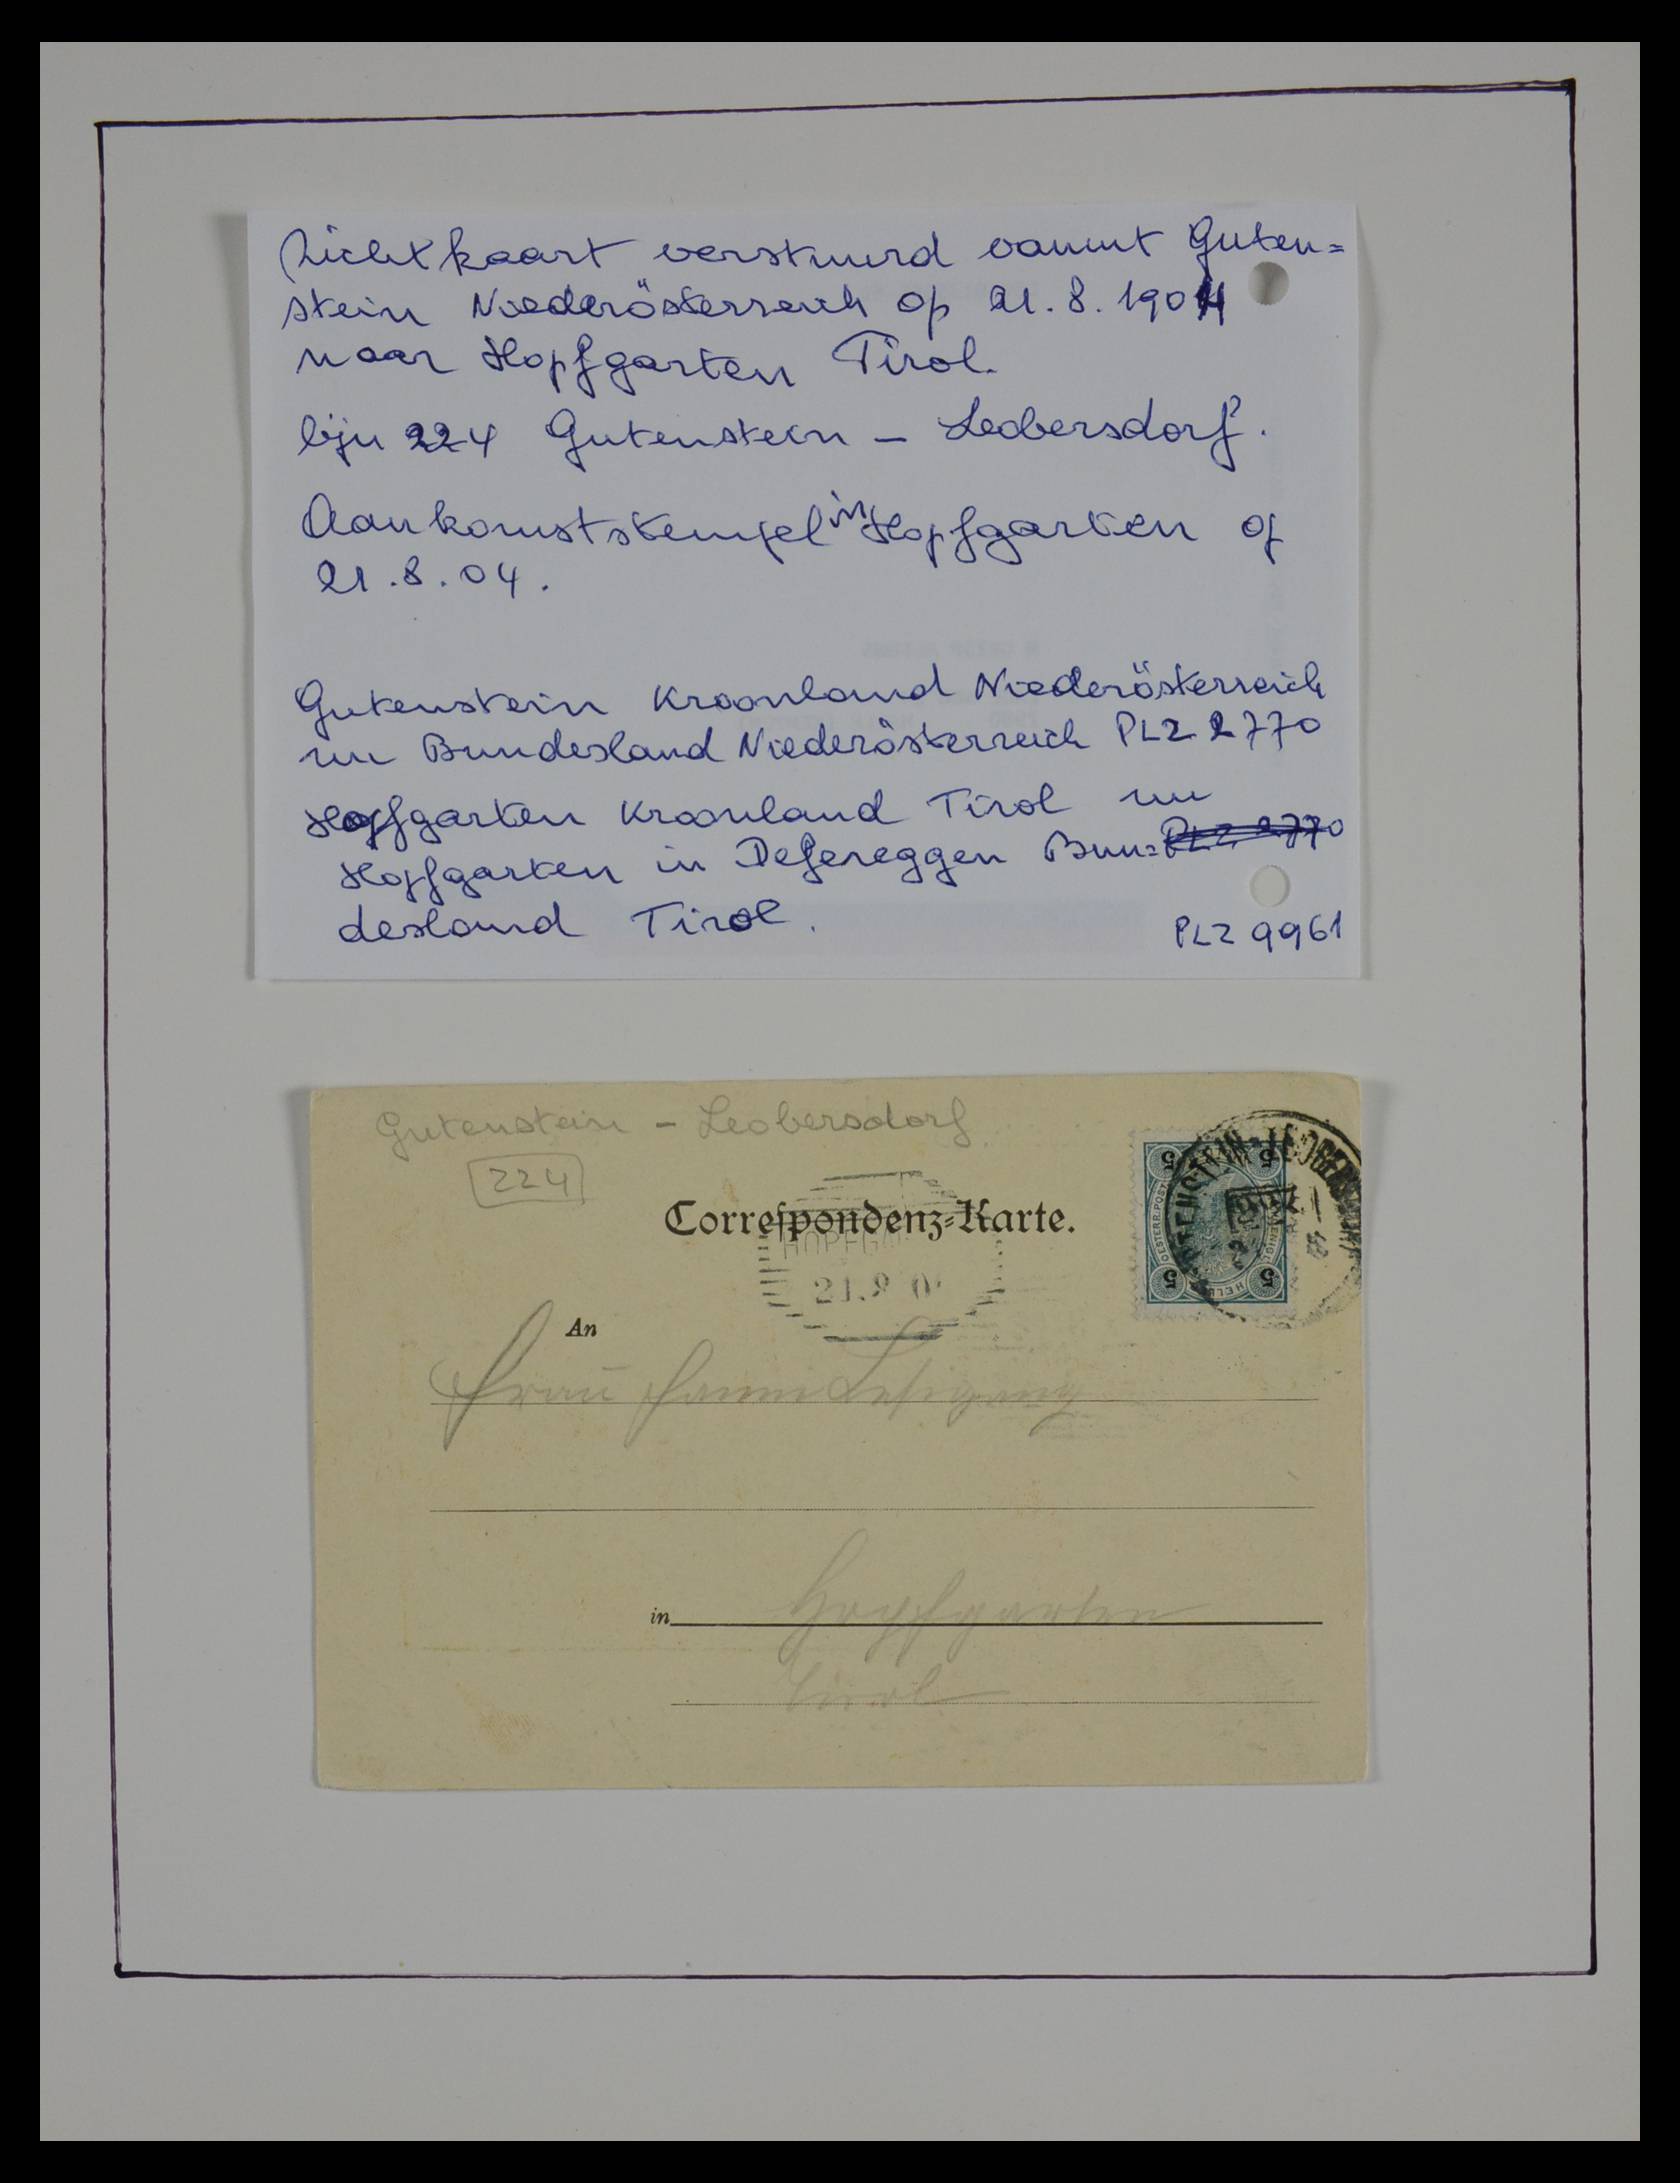 Zichtkaart verstuurd vanuit Guten=
stein Niederösterreich op 21.8.1904
naar Hopfgarten Tirol.
lijn 224 Gutenstein - Leobersdorf.
Aankomststempel in Hopfgarten op
21.8.04.
Gutenstein Kroonland Niederösterreich
nu Bundesland Niederösterreich PLZ 2770
Hopfgarten Kroonland Tirol nu
Hopfgarten in Defereggen Bun= PLZ 2770
desland Tirol.
PLZ 9961
Gutenstein - Leobersdorf
224
Correspondenz-Karte.
HOPFG
21.8 0
5 5
OESTERR.POST
HELLER
5 5
An
Frau
in Hopfgarten
Tirol